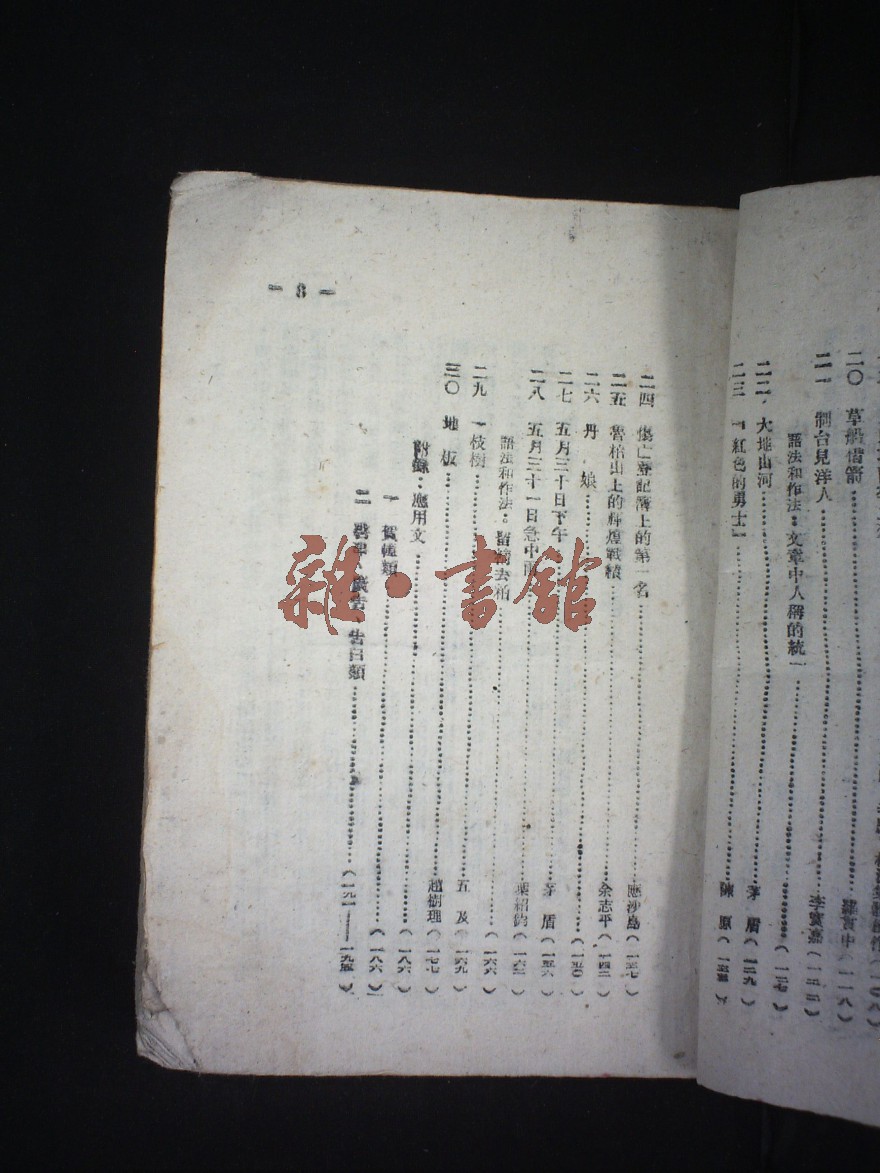 二〇 草船借箭 羅貫中(一一八)
二一 制台見洋人 李寶嘉(一二二)
語法和作法:文章中人稱的統一(一二七)
二二 大地山河 茅盾(一二九)
二三 『紅色的勇士』 陳原(一三三)
二四 傷亡登記簿上的第一名 應沙島(一三七)
二五 山上的輝煌戰績 余志平(一四二)
二六 丹娘(一五〇)
二七 五月三十日下午 茅盾(一五六)
二八 五月三十一日急中雨 葉紹鈞(一六二)
語法和作法:去(一六六)
二九 一枝樹 五及(一六九)
三〇 地板 趙樹理(一七七)
附錄:應用文(一八六)
一 賀幛類(一八六)
二 廣告、告白類(一九一——一九四)
— 3 —
雜·書館